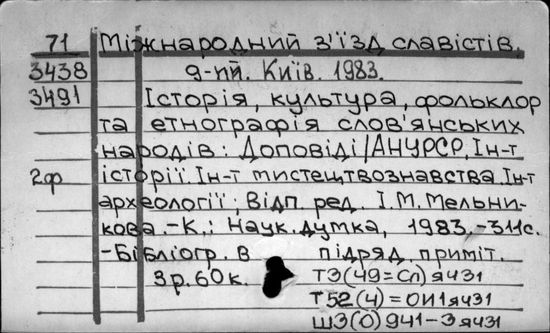 71 Міжнародний з'їзд славістів.
3438 9-пй. Київ. 1983.
3491 Історія, культура, фольклор
та етнографія слов'янських
народів: Доповіді/АНУРСР, Ін-т
2ф історії. Ін-т мистецтвознавства. Ін-т
археології; Відп. ред. І.М. Мельни-
кова. - К.: Наук. думка, 1983. - 311с.
- Бібліогр. в підряд. приміт.
3р. 60к. Т3(49=Сл)я431
Т52(4)=ОИ1я431
Ш3(0)941-3я431